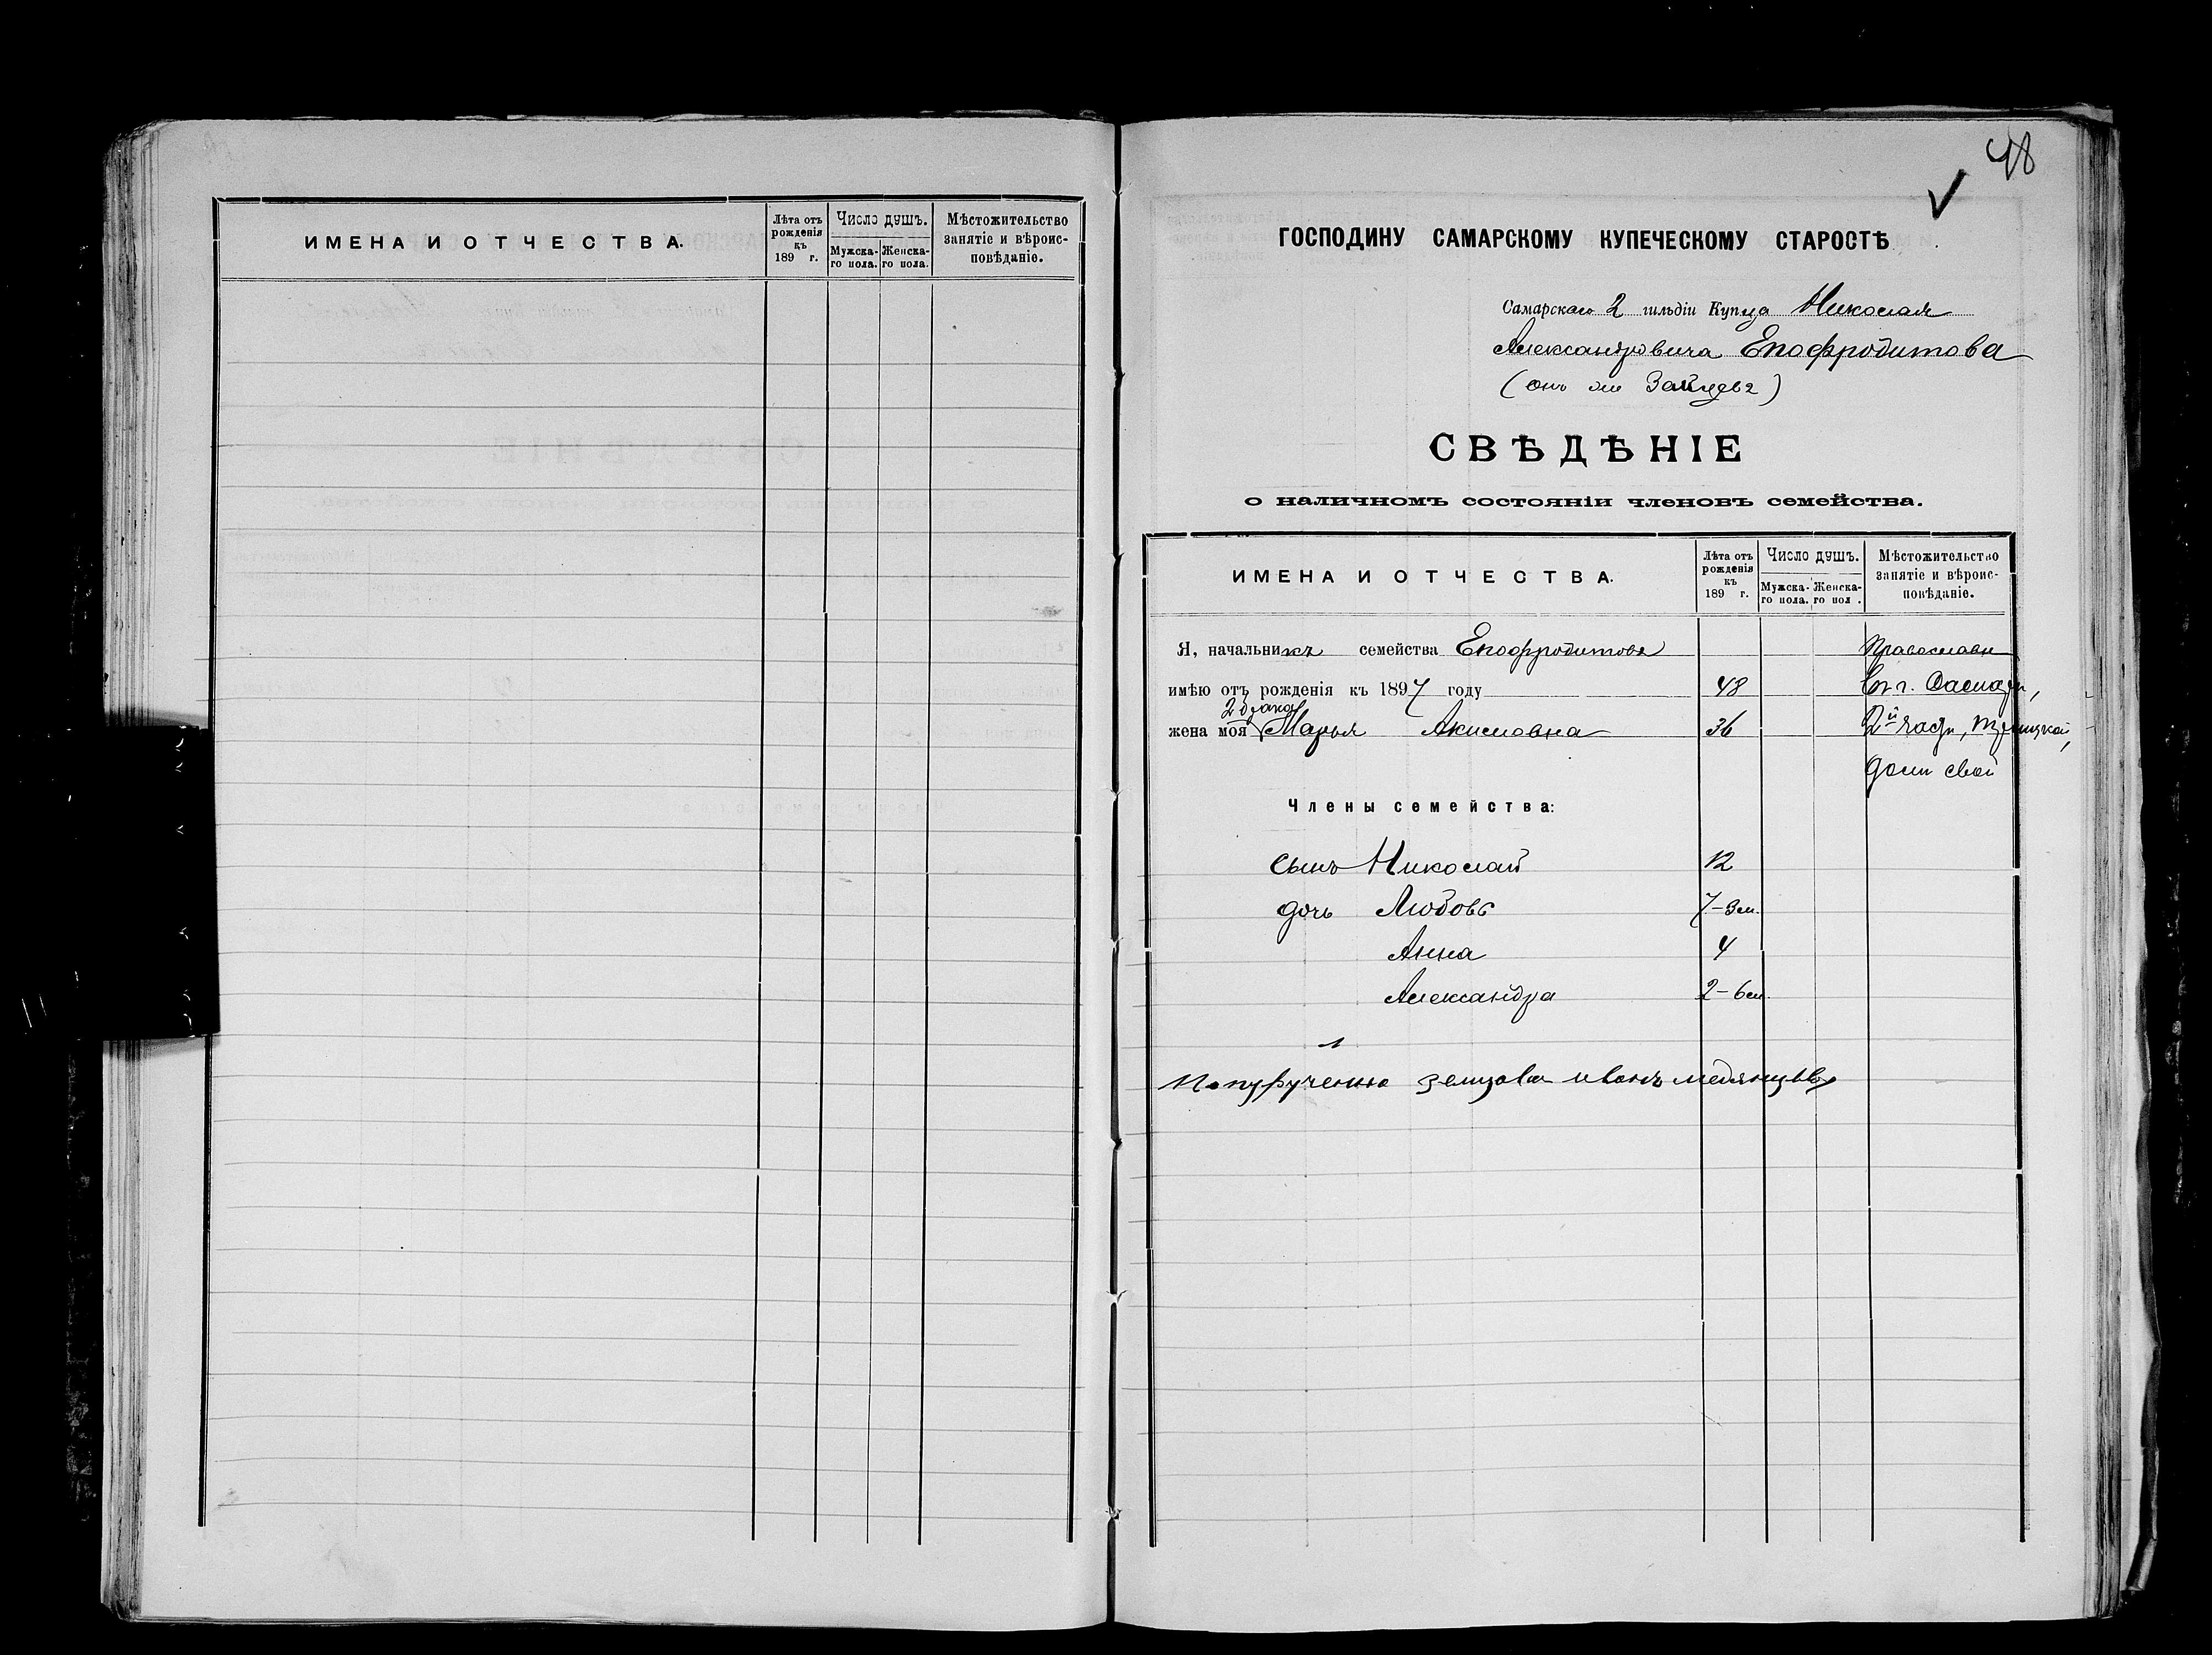 ИМЕНА И ОТЧЕСТВА.
Лѣта отъ рожденія къ 189 г.
Число душъ.
Мужска-го пола.
Женска-го пола.
Мѣстожительство занятіе и вѣроис-повѣданіе.
48
ГОСПОДИНУ САМАРСКОМУ КУПЕЧЕСКОМУ СТАРОСТѢ
Самарскаго 2 гильдіи Купца Николая
Александровича Епофродитова
(онъ же Зайцевъ)
СВѢДѢНІЕ
о наличномъ состояніи членовъ семейства.
ИМЕНА И ОТЧЕСТВА.
Лѣта отъ рожденія къ 189 г.
Число душъ.
Мужска-го пола.
Женска-го пол .
Мѣстожительство занятіе и вѣроис-повѣданіе.
Я, начальникъ семейства Епофродитовъ Православн
имѣю отъ рожденія къ 1897 году 48 Въ г. Самарѣ,
2 брака
жена моя Марья Акимовна 36 2й части, Троицкой,
домъ свой
Члены семейства:
Сынъ Николай 12
дочь Любовь 7-3 м.
Анна 4
Александра 2-6 м.
По пурученію иванъ